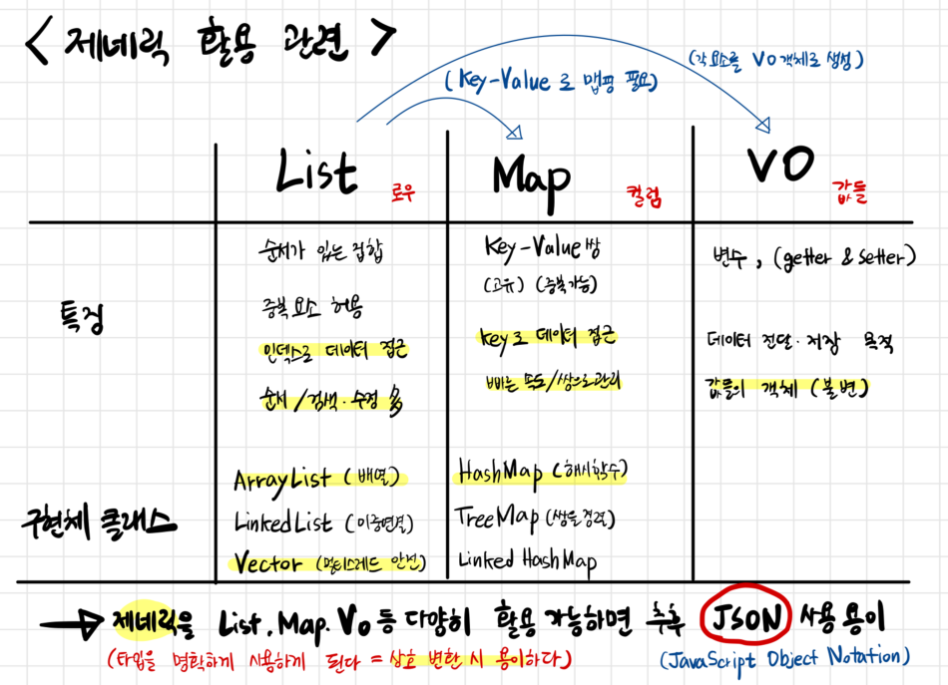 < 제네릭 활용 관련 >
(각 요소를 VO 객체로 생성)
(Key-Value로 맵핑 필요)
List 로우
Map 컬럼
VO 값들
특징
순서가 있는 집합
중복 요소 허용
인덱스로 데이터 접근
순서/검색·수정 多
Key-Value 쌍
(고유) (중복가능)
key로 데이터 접근
빠른 속도/쌍으로 관리
변수, (getter & setter)
데이터 전달·저장 목적
값들의 객체 (불변)
구현체 클래스
ArrayList (배열)
LinkedList (이중연결)
Vector (멀티스레드 안전)
HashMap (해시함수)
TreeMap (쌍을 정렬)
Linked HashMap
→ 제네릭을 List, Map, VO 등 다양히 활용 가능하면 추후 JSON 사용 용이
(타입을 명확하게 사용하게 된다 = 상호 변환 시 용이하다)
(JavaScript Object Notation)